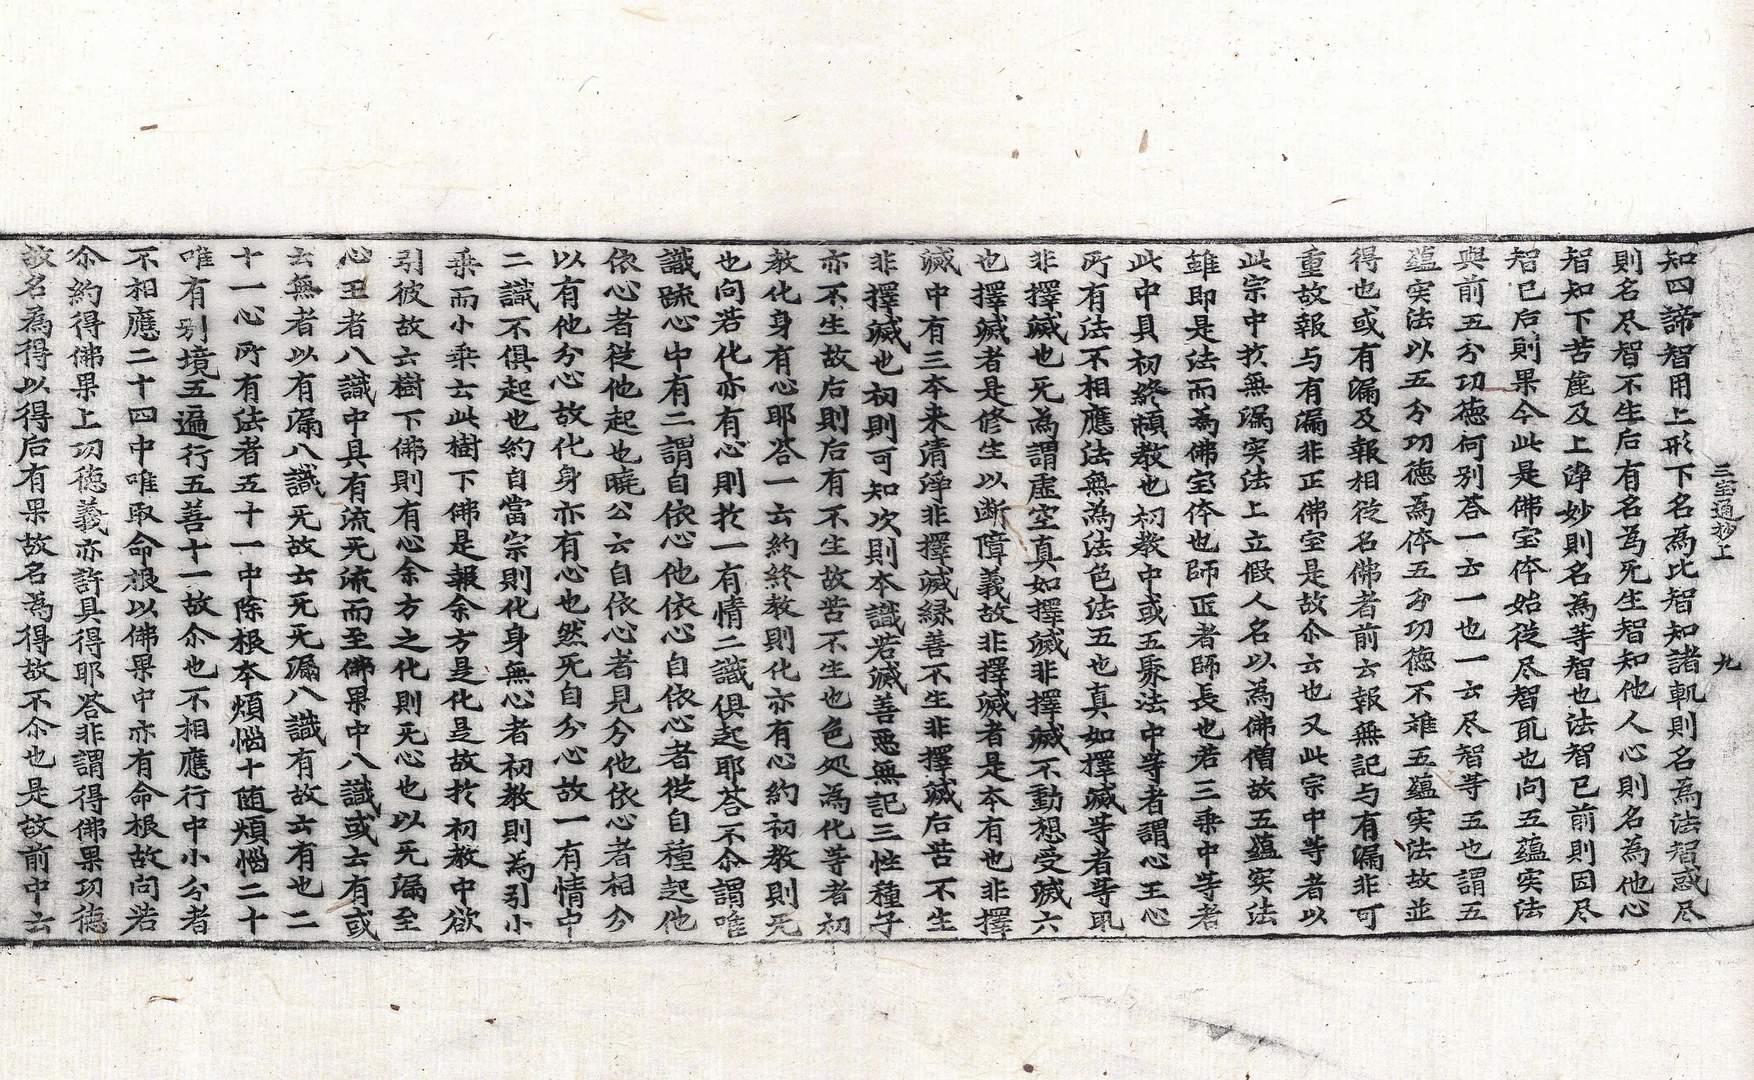 三宝通抄上 九
知四諦智用上形下名為比智知諸軌則名為法智或尽
則名尽智不生后有名為无生智知他人心則名為他心
智知下苦麁及上淨妙則名為等智也法智已前則因尽
智已后則果今此是佛宝体始從尽智取也問五蕴実法
與前五分功徳何別荅一云一也一云尽智等五也謂五
蕴実法以五分功徳為体五分功徳不難五蕴実法故並
得也或有漏及報相從名佛者前云報無記与有漏非可
重故報与有漏非正佛宝是故尒云也又此宗中等者以
此宗中扵無漏実法上立假人名以為佛僧故五蕴実法
雖即是法而為佛宝体也師匠者師長也若三乘中等者
此中具初終頓教也初教中或五聚法中等者謂心王心
所有法不相應法無為法色法五也真如擇滅等者等取
非擇滅也无為謂虚空真如擇滅非擇滅不動想受滅六
也擇滅者是修生以断障義故非擇滅者是本有也非擇
滅中有三本来清淨非擇滅緣善不生非擇滅后苦不生
非擇滅也初則可知次則本識若滅善惡無記三性種子
亦不生故后則后有不生故苦不生也色処為化等者初
教化身有心耶荅一云約終教則化亦有心約初教則无
也向若化亦有心則扵一有情二識俱起耶荅不尒謂唯
識䟽心中有二謂自依心他依心自依心者從自種起他
依心者從他起也曉公云自依心者見分他依心者相分
以有他分心故化身亦有心也然无自分心故一有情中
二識不俱起也約自當宗則化身無心者初教則為引小
乘而小乘云此樹下佛是報余方是化是故扵初教中欲
引彼故云樹下佛則有心余方之化則无心也以无漏至
心王者八識中具有流无流而至佛果中八識或云有或
云無者以有漏八識无故云无无漏八識有故云有也二
十一心所有法者五十一中除根本煩惱十随煩惱二十
唯有别境五遍行五善十一故尒也不相應行中小分者
不相應二十四中唯取命根以佛果中亦有命根故問若
尒約得佛果上功徳義亦許具得耶荅非謂得佛果功徳
故名為得以得后有果故名為得故不尒也是故前中云